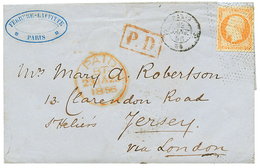 PARIS
P.D.
PAID
1856
Mrs Mary A. Robertson
13 Clarendon Road
St Heliers Jersey
via London